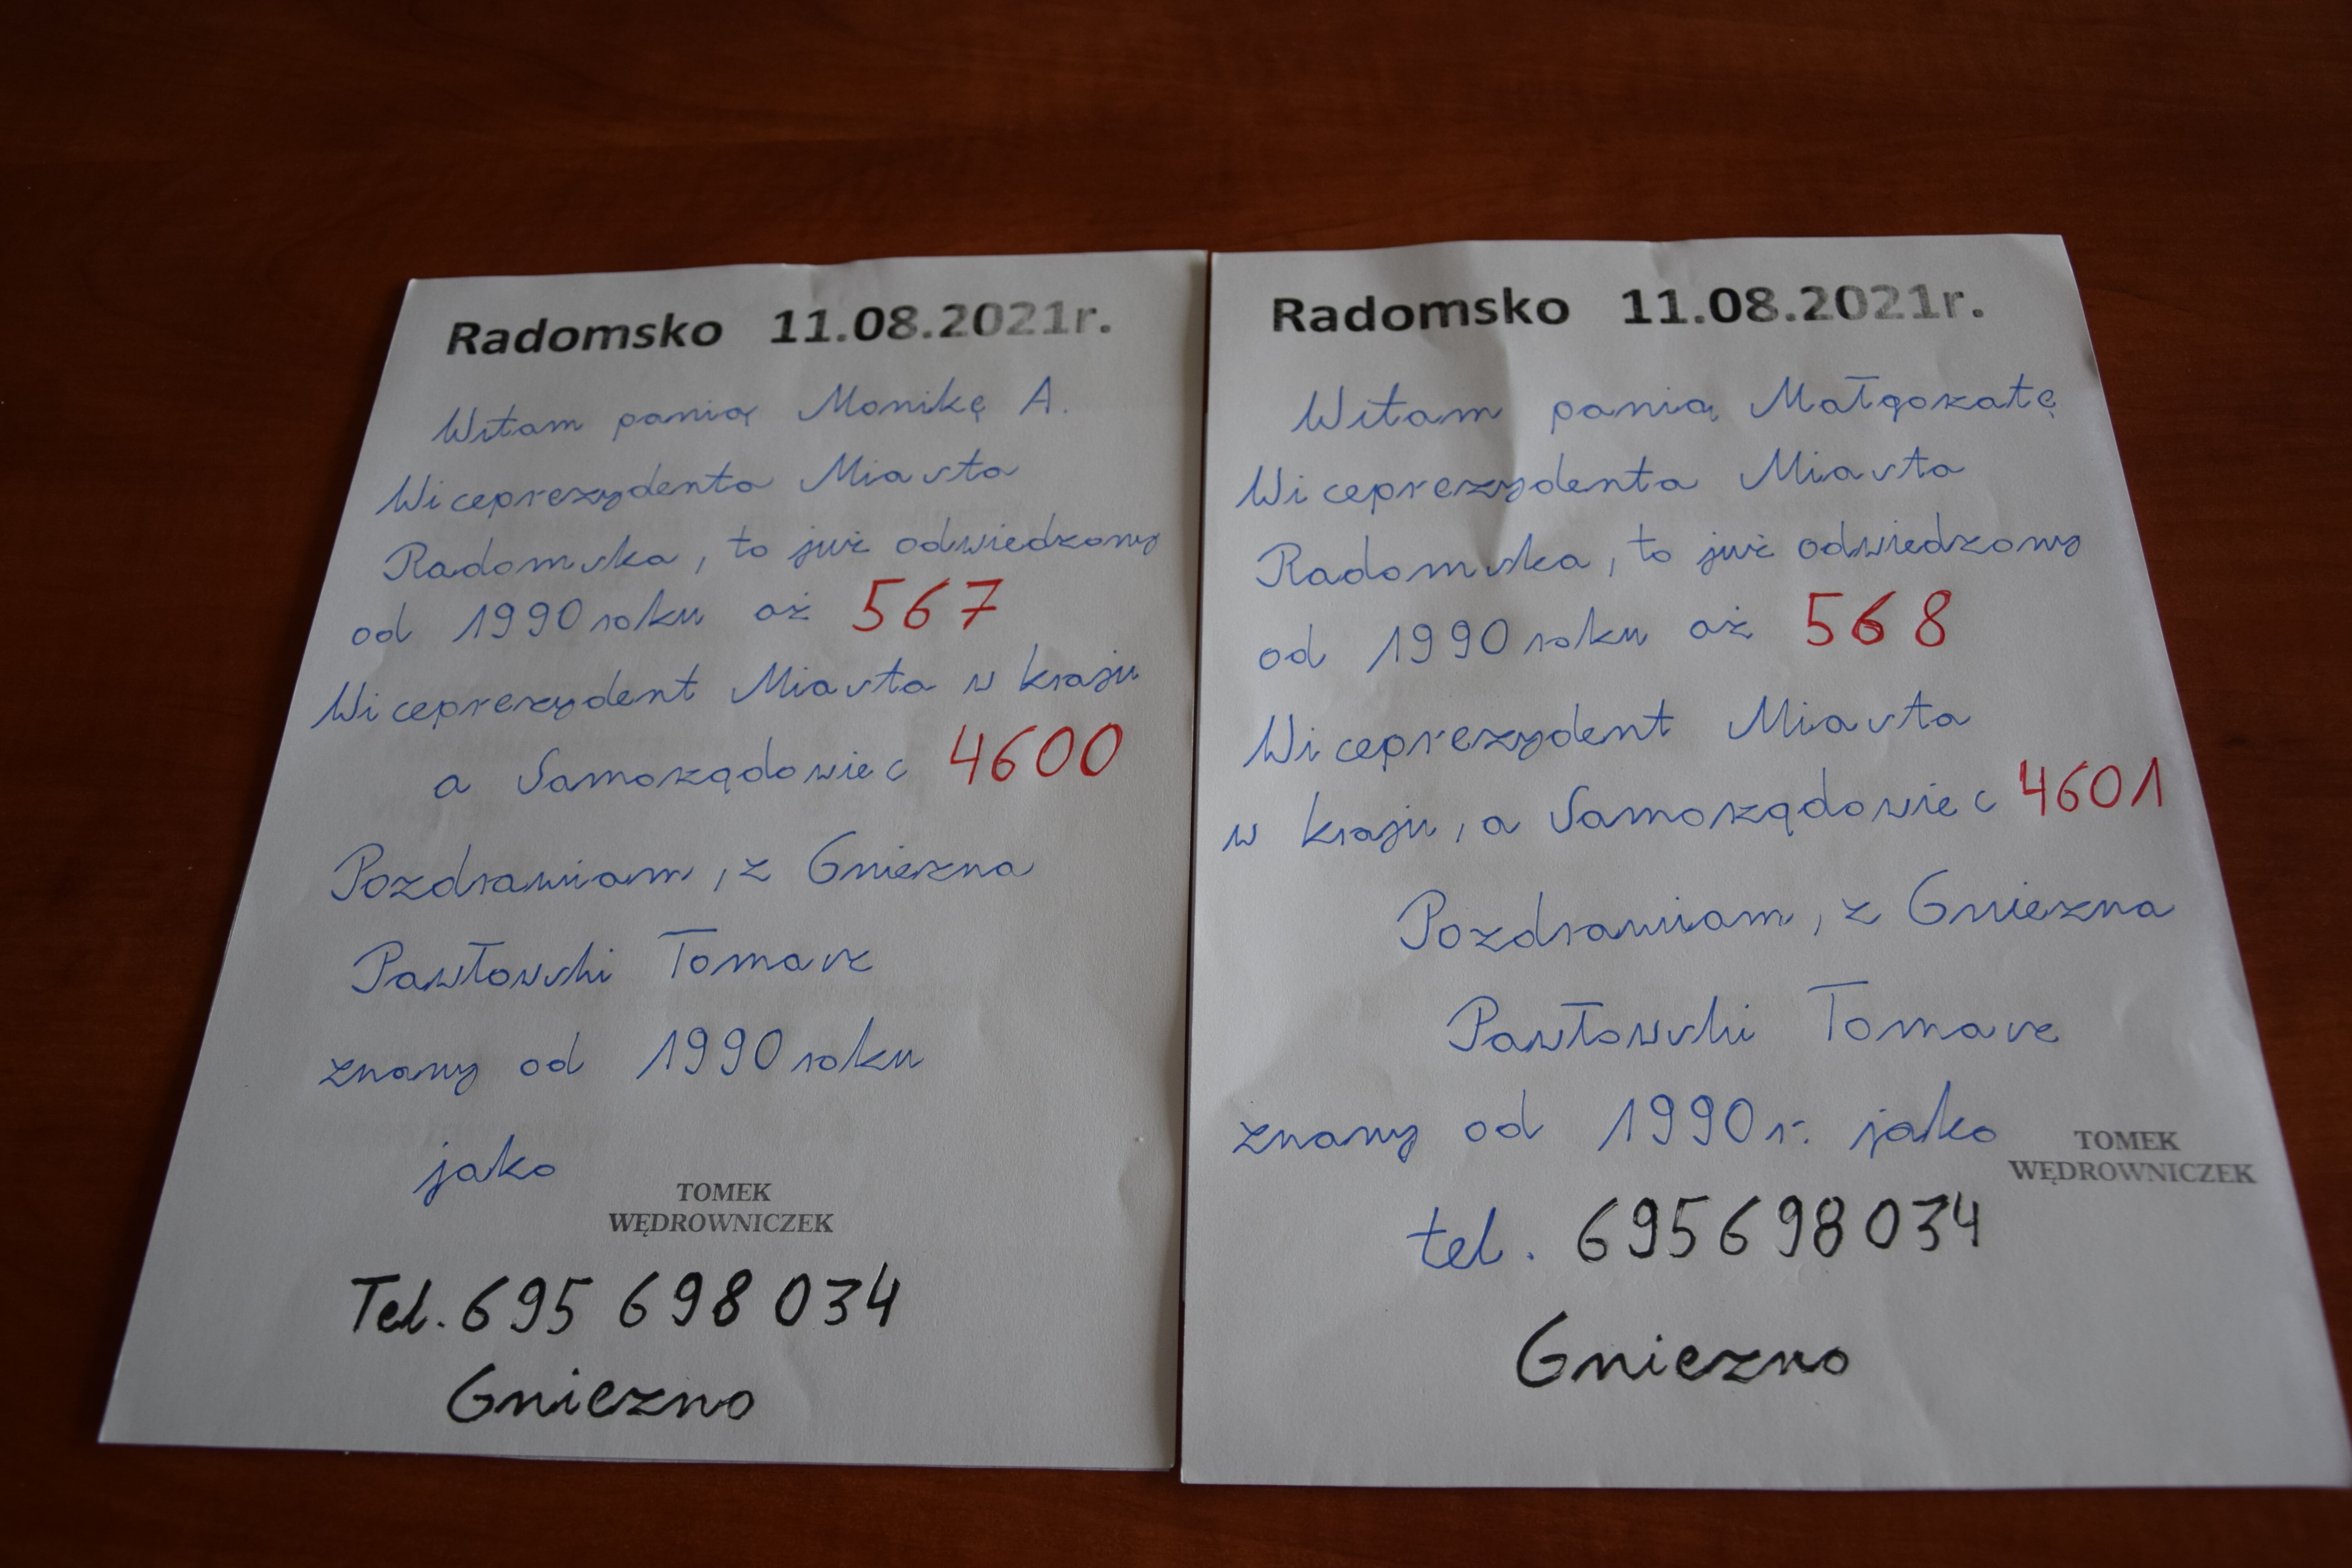 Radomsko 11.08.2021r.
Witam panią Monikę A.
Wiceprezydenta Miasta
Radomska, to już odwiedzony
od 1990 roku aż 567
Wiceprezydent Miasta w kraju
a Samorządowiec 4600
Pozdrawiam, z Gniezna
Pawłowski Tomasz
znany od 1990 roku
jako
TOMEK
WĘDROWNICZEK
Tel. 695 698 034
Gniezno
Radomsko 11.08.2021r.
Witam panią Małgożatę
Wiceprezydenta Miasta
Radomska, to już odwiedzony
od 1990 roku aż 568
Wiceprezydent Miasta
w kraju, a Samorządowiec 4601
Pozdrawiam, z Gniezna
Pawłowski Tomasz
znany od 1990 r. jako
TOMEK
WĘDROWNICZEK
tel. 695698034
Gniezno